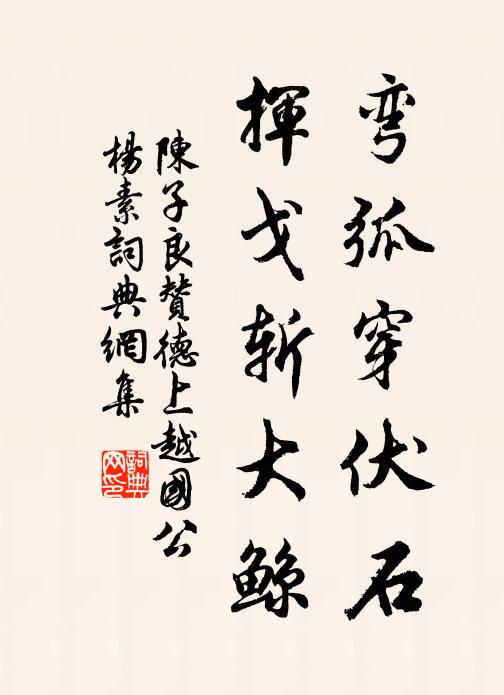 弯弧穿伏石
揮戈斬大鲸
陳子良贊德上越國公
楊素詞典網集
詞典网印